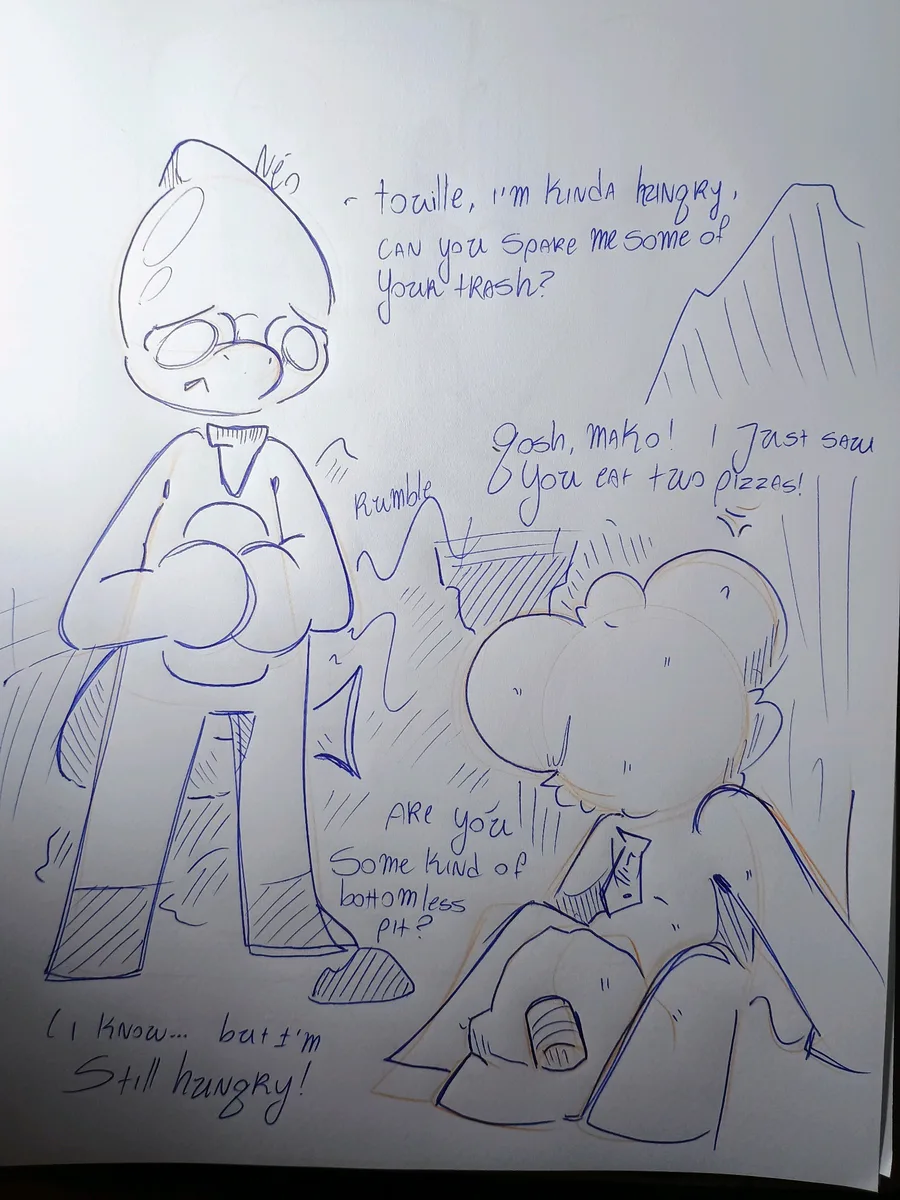 Néo
- touille, I'm kinda hungry,
can you spare me some of
your trash?
Gosh, mako! I Just saw
you eat two pizzas!
Rumble
Are you
Some kind of
bottomless
pit?
( I know... but I'm
Still hungry!